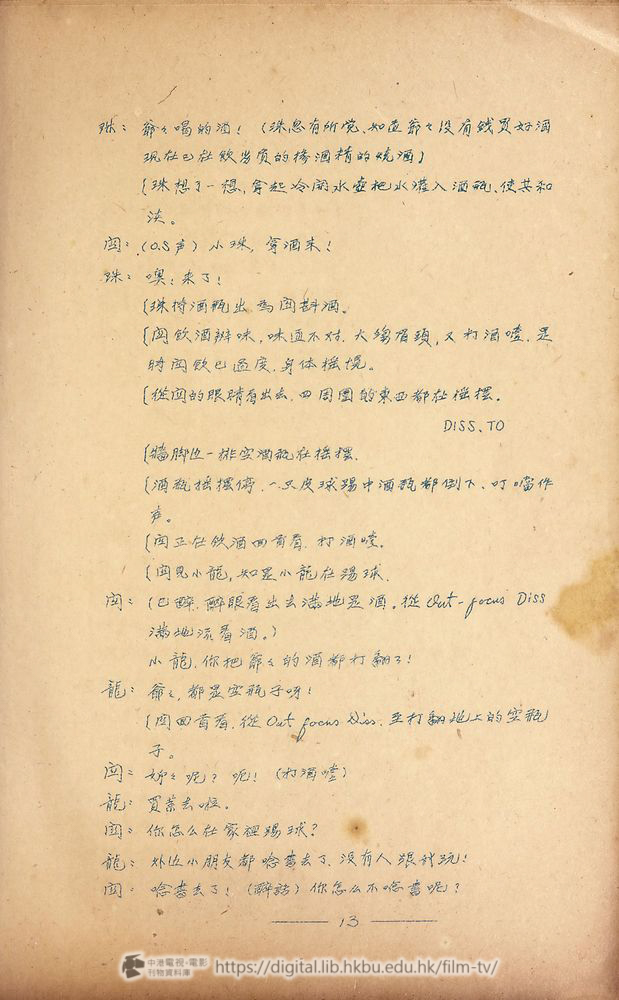 珠：爺々喝的酒！（珠忽有所觉，知道爺々没有錢買好酒
现在已在飲劣質的掺酒精的烧酒）
［珠想了一想，拿起冷開水壺把水灌入酒瓶，使其和
淡。
閎：（O.S声）小珠，拿酒来！
珠：噢！来了！
［珠持酒瓶出，為閎斟酒。
［閎飲酒辨味，味道不对，大縐眉頭，又打酒噎，是
時閎飲已過度，身体摇愰。
［從閎的眼睛看出去，四周圍的東西都在摇摆。
DISS. TO
［牆脚边一排空酒瓶在摇摆．
［酒瓶摇摆停，一只皮球踢中酒瓶都倒下、叮噹作
声。
［閎正在飲酒回首看，打酒噎。
［閎見小龍，知是小龍在踢球．
閎：（已醉，醉眼看出去滿地是酒。從 Out-focus Diss
滿地流着酒。）
小龍，你把爺々的酒都打翻了！
龍：爺々，都是空瓶子呀！
［閎回首看，從 Out focus Diss. 至打翻地上的空瓶
子。
閎：妳々呢？呢！（打酒噎）
龍：買菜去啦。
閎：你怎么在家裡踢球？
龍：外边小朋友都唸書去了，没有人跟我玩！
閎：唸書去了！（醉話）你怎么不唸書呢？
13
中港電視·電影
刊物資料庫
https://digital.lib.hkbu.edu.hk/film-tv/